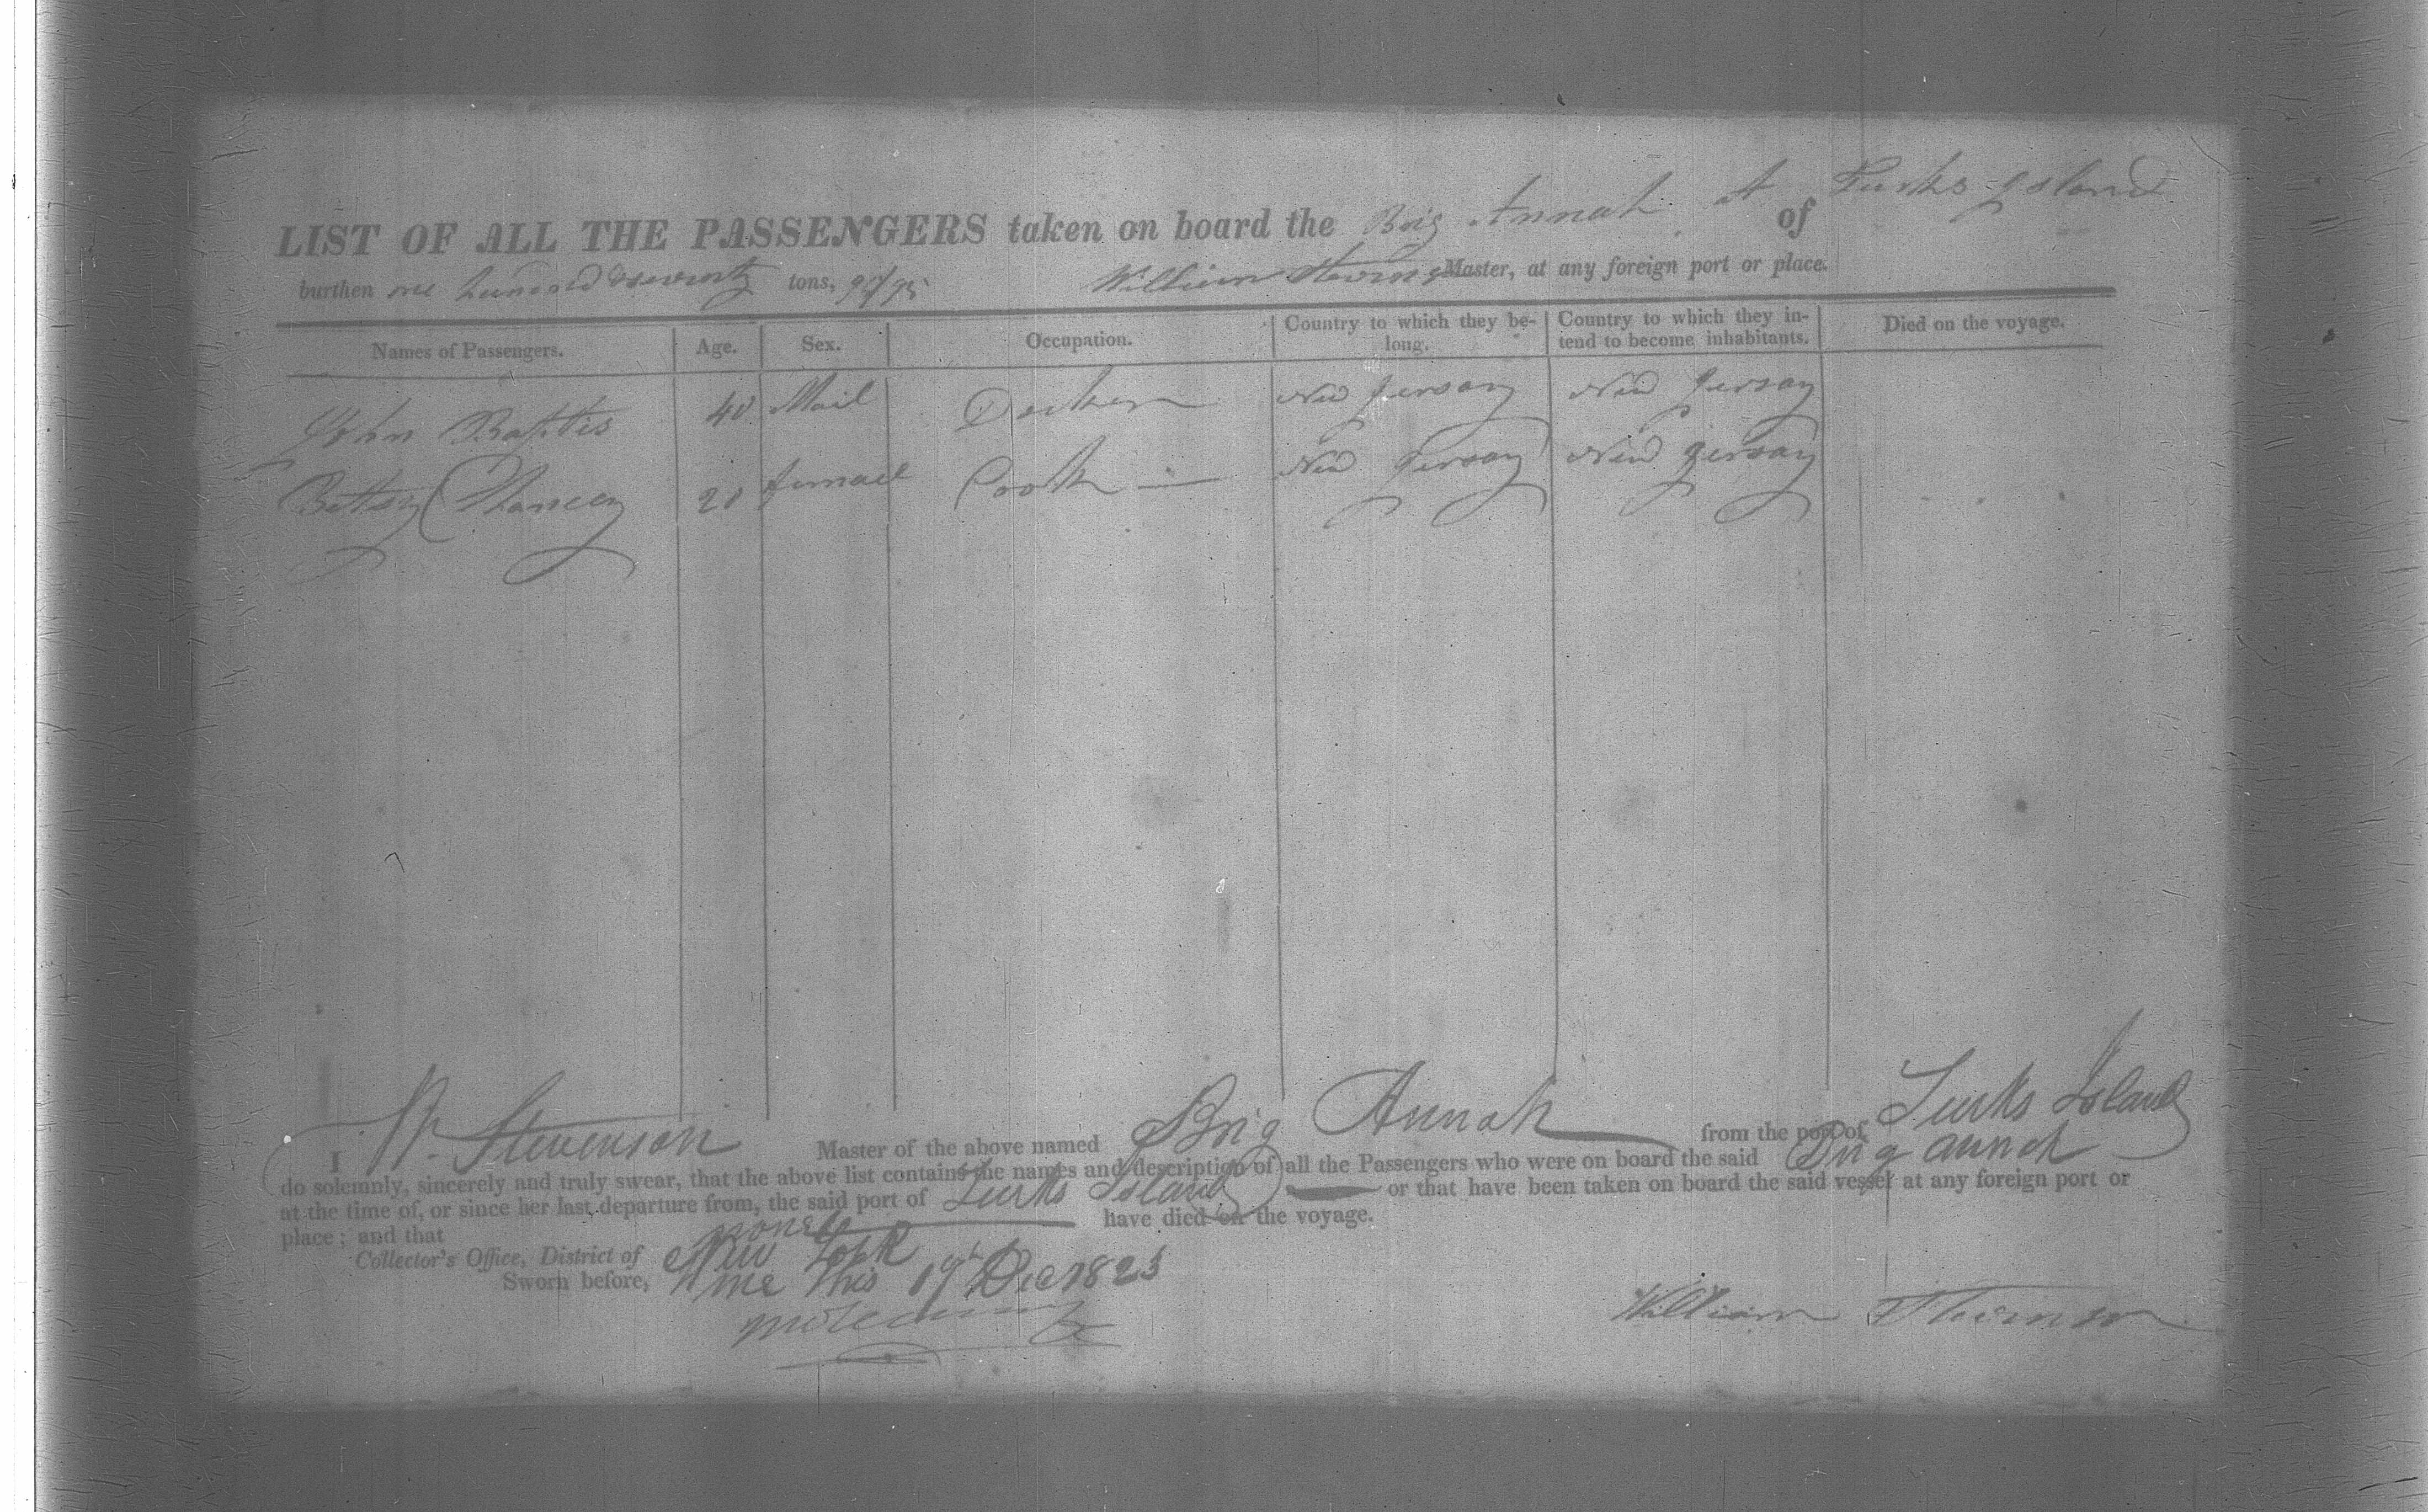 LIST OF ALL THE PASSENGERS taken on board the Brig Annah at of Turks Island
burthen one hundred & seventy tons, 90/95 William Stevenson Master, at any foreign port or place.
Names of Passengers. Age. Sex. Occupation. Country to which they be- long. Country to which they in- tend to become inhabitants. Died on the voyage.
John Baptis 40 Mail New Jersay New Jersay
Betsey Chancey 20 femael Cook New Jersay New Jersay
I W. Stevenson Master of the above named Brig Annah from the port of Turks Island
do solemnly, sincerely and truly swear, that the above list contains the names and description of all the Passengers who were on board the said Brig Annah
at the time of, or since her last departure from, the said port of Turks Island or that have been taken on board the said vessel at any foreign port or
place; and that none have died on the voyage.
Collector's Office, District of New York
Sworn before, me this 19th Dec 1823
William Stevenson